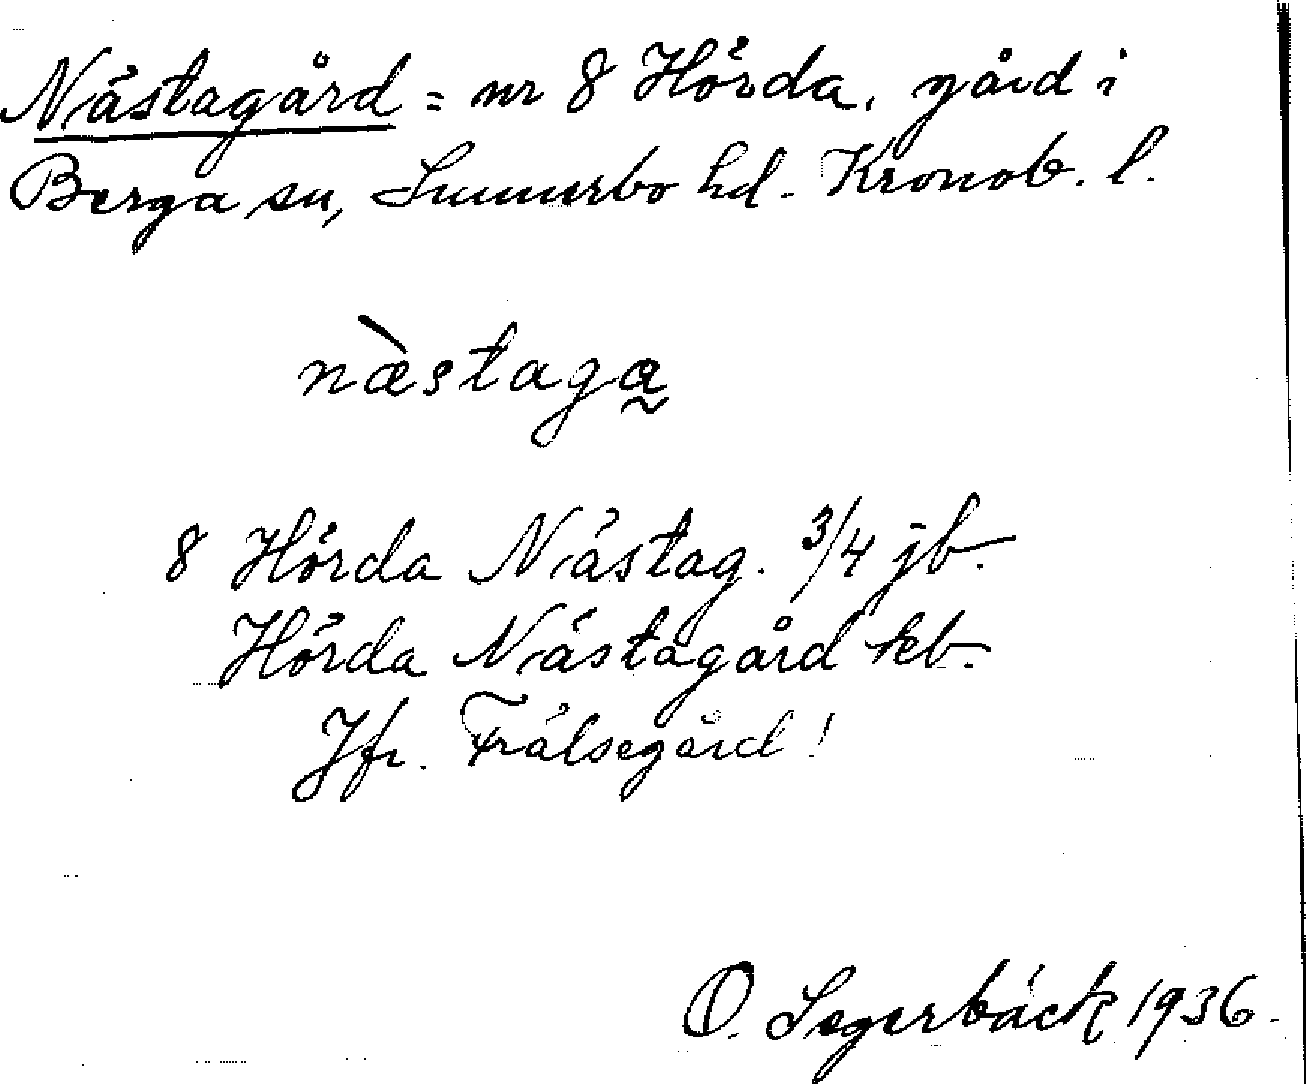 Nästagård = nr 8 Hörda, gård i
Berga sn, Sunnerbo hd. Kronob. l.
nàstaga̰
8 Hörda Nästag. 3/4 jb.
Hörda Nästagård kb.
Jfr. Frälsegård!
O. Segerbäck 1936.